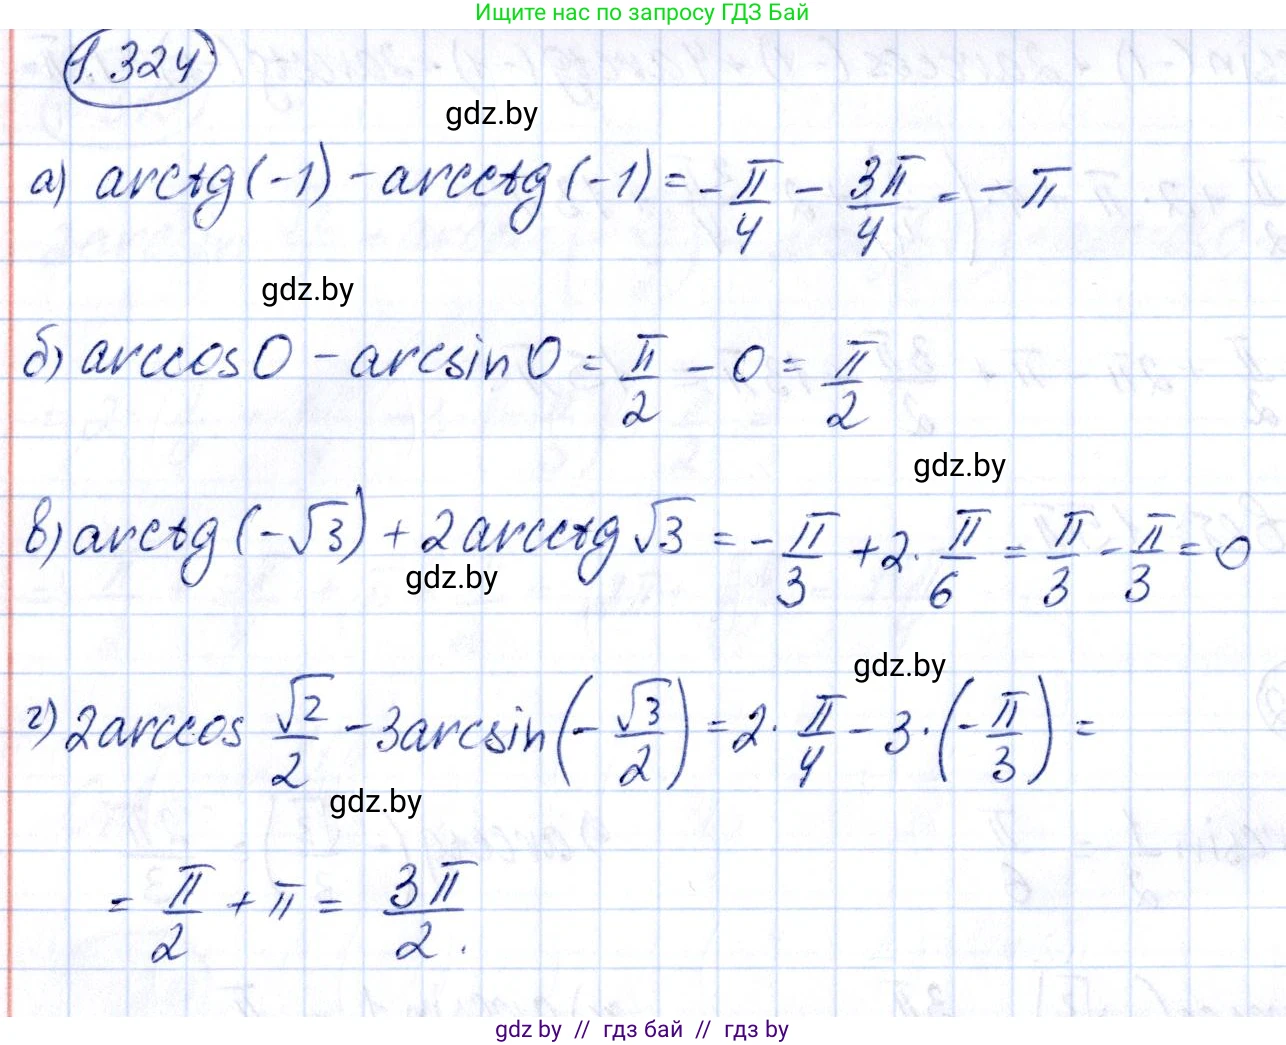 Ищите нас по запросу ГДЗ Бай
1.324
gdz.by
а) arctg(-1) - arcctg(-1) = -π/4 - 3π/4 = -π
gdz.by
б) arccos0 - arcsin0 = π/2 - 0 = π/2
gdz.by
в) arctg(-√3) + 2arcctg√3 = -π/3 + 2·π/6 = π/3 - π/3 = 0
gdz.by
gdz.by
г) 2arccos √2/2 - 3arcsin(-√3/2) = 2·π/4 - 3·(-π/3) =
gdz.by
= π/2 + π = 3π/2.
gdz by // гдз бай // гдз by